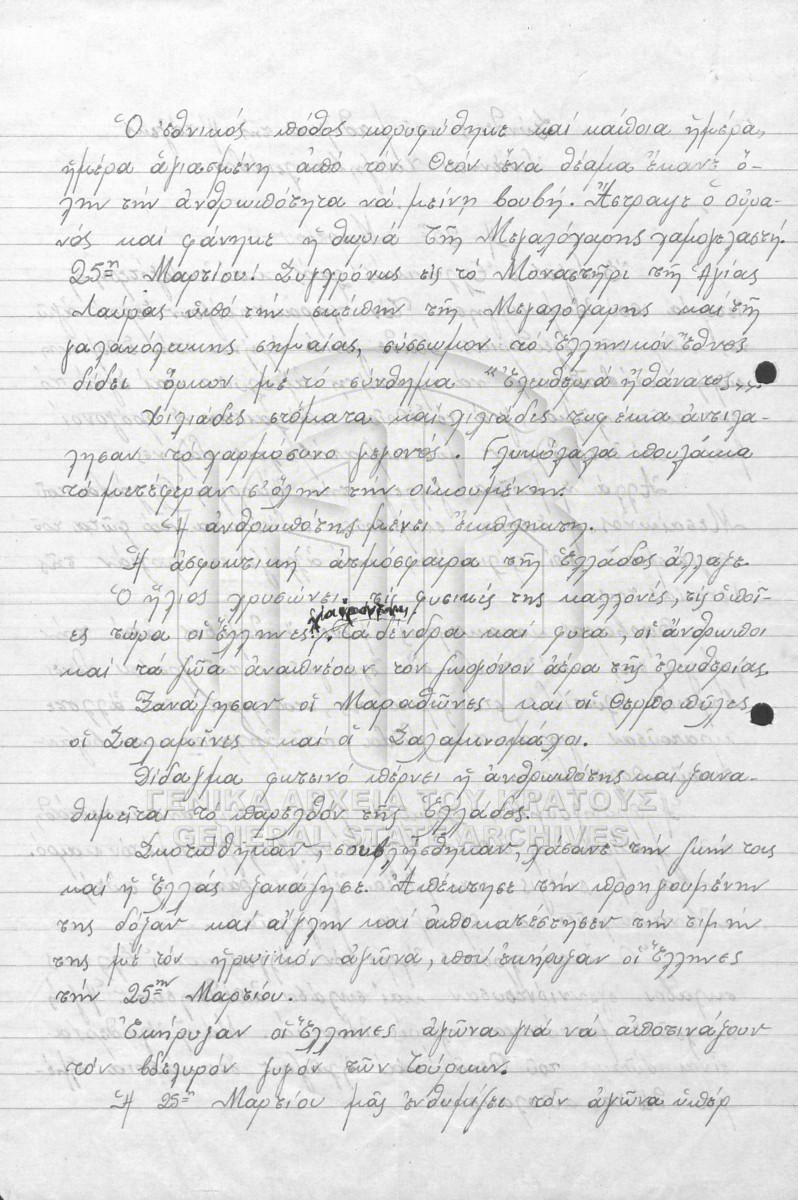 Ὁ ἐθνικός πόθος κορυφώθηκε καί κάποια ἡμέρα,
ἡμέρα ἁγιασμένη ἀπό τόν Θεόν ἕνα θέαμα ἔκανε ὅ-
λην τήν ἀνθρωπότητα νά μείνῃ βουβή. Ἄστραψε ὁ οὐρα-
νός καί φάνηκε ἡ θωριά τῆς Μεγαλόχαρης χαμογελαστή.
25η Μαρτίου. Συγχρόνως εἰς τό Μοναστῆρι τῆς Ἁγίας
Λαύρας ὑπό τήν σκέπην τῆς Μεγαλόχαρης καί τῆς
γαλανόλευκης σημαίας, σύσσωμον τό Ἑλληνικόν Ἔθνος
δίδει ὅρκον μέ τό σύνθημα "Ἐλευθεριά ἤ θάνατος,,.
Χιλιάδες στόματα καί χιλιάδες τυφέκια ἀντιλά-
λησαν τό χαρμόσυνο γεγονός. Γλυκόλαλα πουλάκια
τό μετέφεραν σ' ὅλην τήν οἰκουμένην.
Ἡ ἀνθρωπότης μένει ἔκπληκτη.
Ἡ ἀσφυκτική ἀτμόσφαιρα τῆς Ἑλλάδος ἄλλαξε.
Ὁ ἥλιος χρυσώνει τίς φυσικές της καλλονές, τίς ὁποῖ-
ες τώρα οἱ Ἕλληνες Τά δένδρα καί φυτά, οἱ ἄνθρωποι
καί τά ζῶα ἀναπνέουν τόν ζωογόνον ἀέρα τῆς ἐλευθερίας.
Ξανάζησαν οἱ Μαραθῶνες καί οἱ Θερμοπύλες
οἱ Σαλαμῖνες καί οἱ Σαλαμινομάχοι.
Δίδαγμα φωτεινό παίρνει ἡ ἀνθρωπότης καί ξανα-
θυμεῖται τό παρελθόν τῆς Ἑλλάδος.
Σκοτώθηκαν, σουβλίσθηκαν, χάσανε τήν ζωήν τους
καί ἡ Ἑλλάς ξανάζησε. Ἀπέκτησε τήν προηγουμένην
της δόξαν καί αἴγλην καί ἀποκατέστησεν τήν τιμήν
της μέ τόν ἡρωϊκόν ἀγῶνα, πού ἐκήρυξαν οἱ Ἕλληνες
τήν 25ην Μαρτίου.
Ἐκήρυξαν οἱ Ἕλληνες ἀγῶνα γιά νά ἀποτινάξουν
τόν βδελυρόν ζυγόν τῶν Τούρκων.
Ἡ 25η Μαρτίου μᾶς ἐνθυμίζει τόν ἀγῶνα ὑπέρ
ΓΕΝΙΚΑ ΑΡΧΕΙΑ ΤΟΥ ΚΡΑΤΟΥΣ
GENERAL STATE ARCHIVES